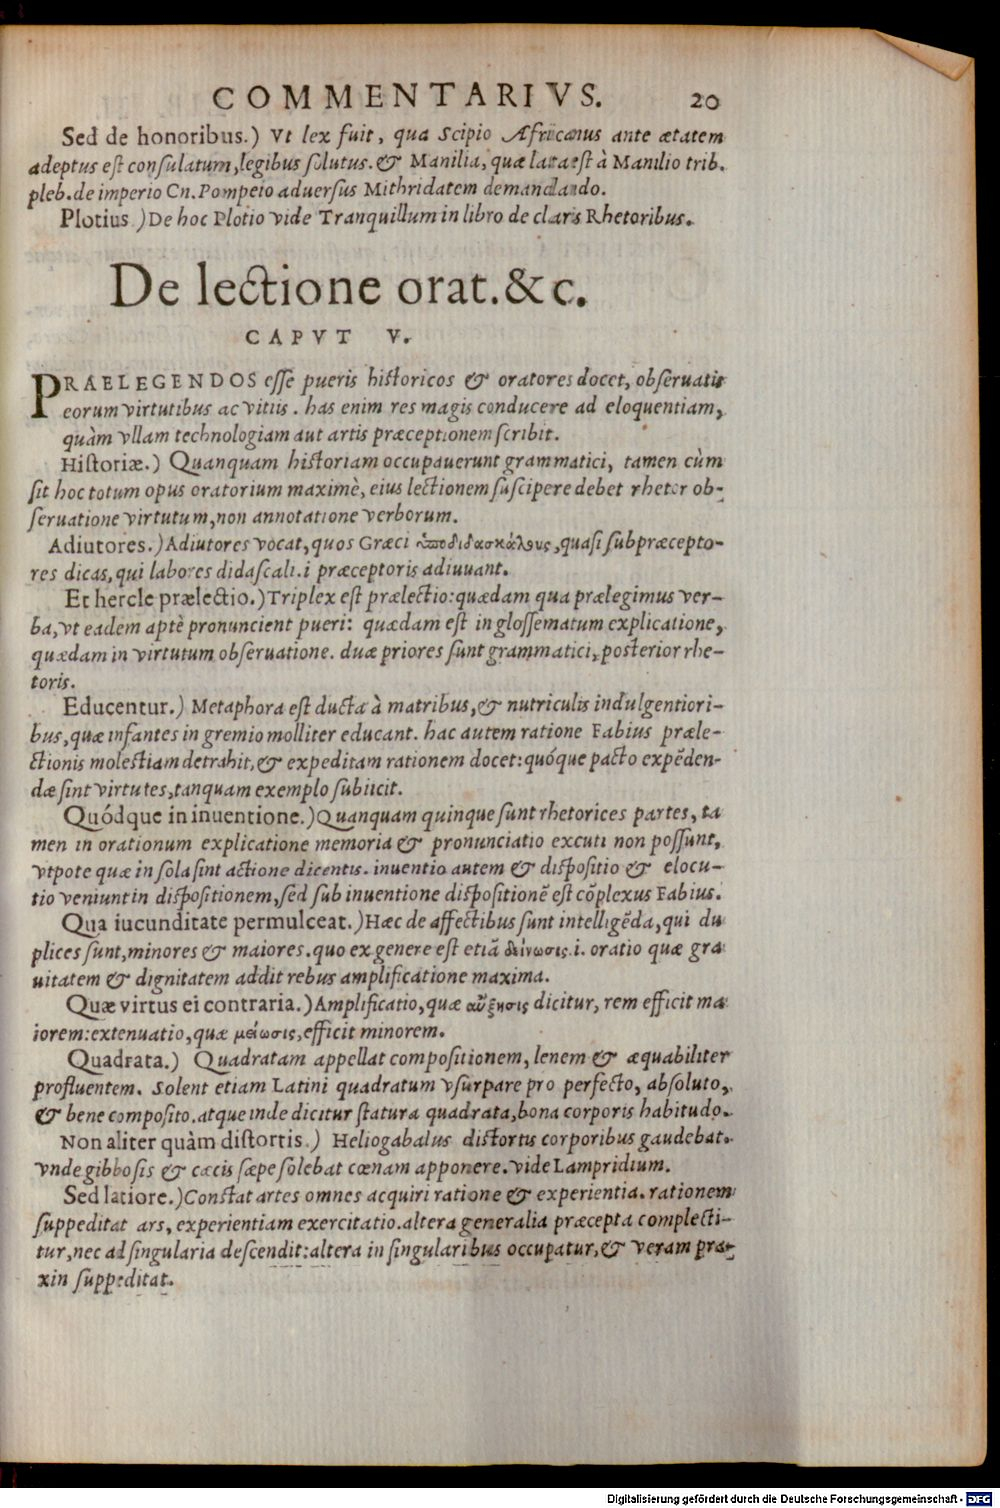 COMMENTARIVS. 20
Sed de honoribus.) Vt lex fuit, qua Scipio Africanus ante ætatem
adeptus est consulatum, legibus solutus. & Manilia, quæ lata est à Manilio trib.
pleb. de imperio Cn. Pompeio aduersus Mithridatem demandando.
Plotius.) De hoc Plotio vide Tranquillum in libro de claris Rhetoribus.
De lectione orat. &c.
CAPVT V.
PRAELEGENDOS esse pueris historicos & oratores docet, obseruatis
eorum virtutibus ac vitiis. has enim res magis conducere ad eloquentiam,
quàm vllam technologiam aut artis præceptionem scribit.
Historiæ.) Quanquam historiam occupauerunt grammatici, tamen cùm
sit hoc totum opus oratorium maximè, eius lectionem suscipere debet rhetor ob-
seruatione virtutum, non annotatione verborum.
Adiutores.) Adiutores vocat, quos Græci ὑποδιδασκάλους, quasi subpræcepto-
res dicas, qui labores didascali .i præceptoris adiuuant.
Et hercle prælectio.) Triplex est prælectio: quædam qua prælegimus ver-
ba, vt eadem aptè pronuncient pueri: quædam est in glossematum explicatione,
quædam in virtutum obseruatione. duæ priores sunt grammatici, posterior rhe-
toris.
Educentur.) Metaphora est ducta à matribus, & nutriculis indulgentiori-
bus, quæ infantes in gremio molliter educant. hac autem ratione Fabius præle-
ctionis molestiam detrahit, & expeditam rationem docet: quóque pacto expẽden-
dæ sint virtutes, tanquam exemplo subiicit.
Quódque in inuentione.) Quanquam quinque sunt rhetorices partes, ta
men in orationum explicatione memoria & pronunciatio excuti non possunt,
vtpote quæ in sola sint actione dicentis. inuentio autem & dispositio & elocu-
tio veniunt in dispositionem, sed sub inuentione dispositionẽ est cõplexus Fabius.
Qua iucunditate permulceat.) Hæc de affectibus sunt intelligẽda, qui du
plices sunt, minores & maiores. quo ex genere est etiã δείνωσις .i. oratio quæ gra
uitatem & dignitatem addit rebus amplificatione maxima.
Quæ virtus ei contraria.) Amplificatio, quæ αὔξησις dicitur, rem efficit ma
iorem: extenuatio, quæ μείωσις, efficit minorem.
Quadrata.) Quadratam appellat compositionem, lenem & æquabiliter
profluentem. Solent etiam Latini quadratum vsurpare pro perfecto, absoluto,
& bene composito. atque inde dicitur statura quadrata, bona corporis habitudo.
Non aliter quàm distortis.) Heliogabalus distortis corporibus gaudebat.
vnde gibbosis & cæcis sæpe solebat cœnam apponere. vide Lampridium.
Sed latiore.) Constat artes omnes acquiri ratione & experientia. rationem
suppeditat ars, experientiam exercitatio. altera generalia præcepta complecti-
tur, nec ad singularia descendit: altera in singularibus occupatur, & veram pra-
xin suppeditat.
Digitalisierung gefördert durch die Deutsche Forschungsgemeinschaft - DFG